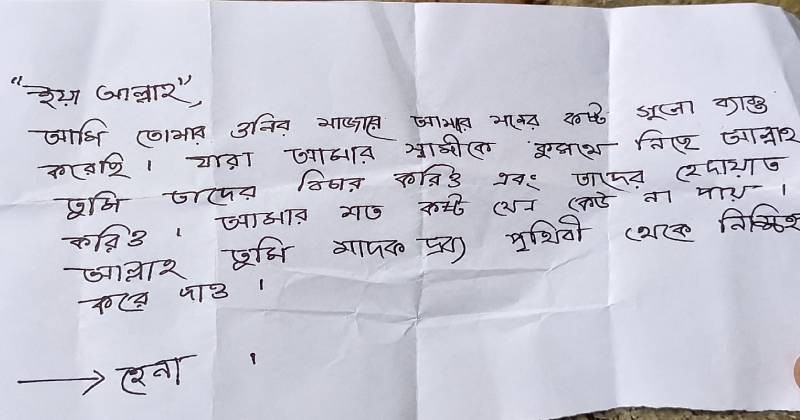 "ইয়া আল্লাহ",
আমি তোমার ওলির মাজারে আমার মনের কষ্ট গুলো ব্যাক্ত
করেছি । যারা আমার স্বামীকে কুপথে নিছে আল্লাহ
তুমি তাদের বিচার করিও এবং তাদের হেদায়াত
করিও । আমার মত কষ্ট যেন কেউ না পায় ।
আল্লাহ তুমি মাদক দ্রব্য পৃথিবী থেকে নিশ্চিহ্ন
করে দাও ।
→ হেনা ।